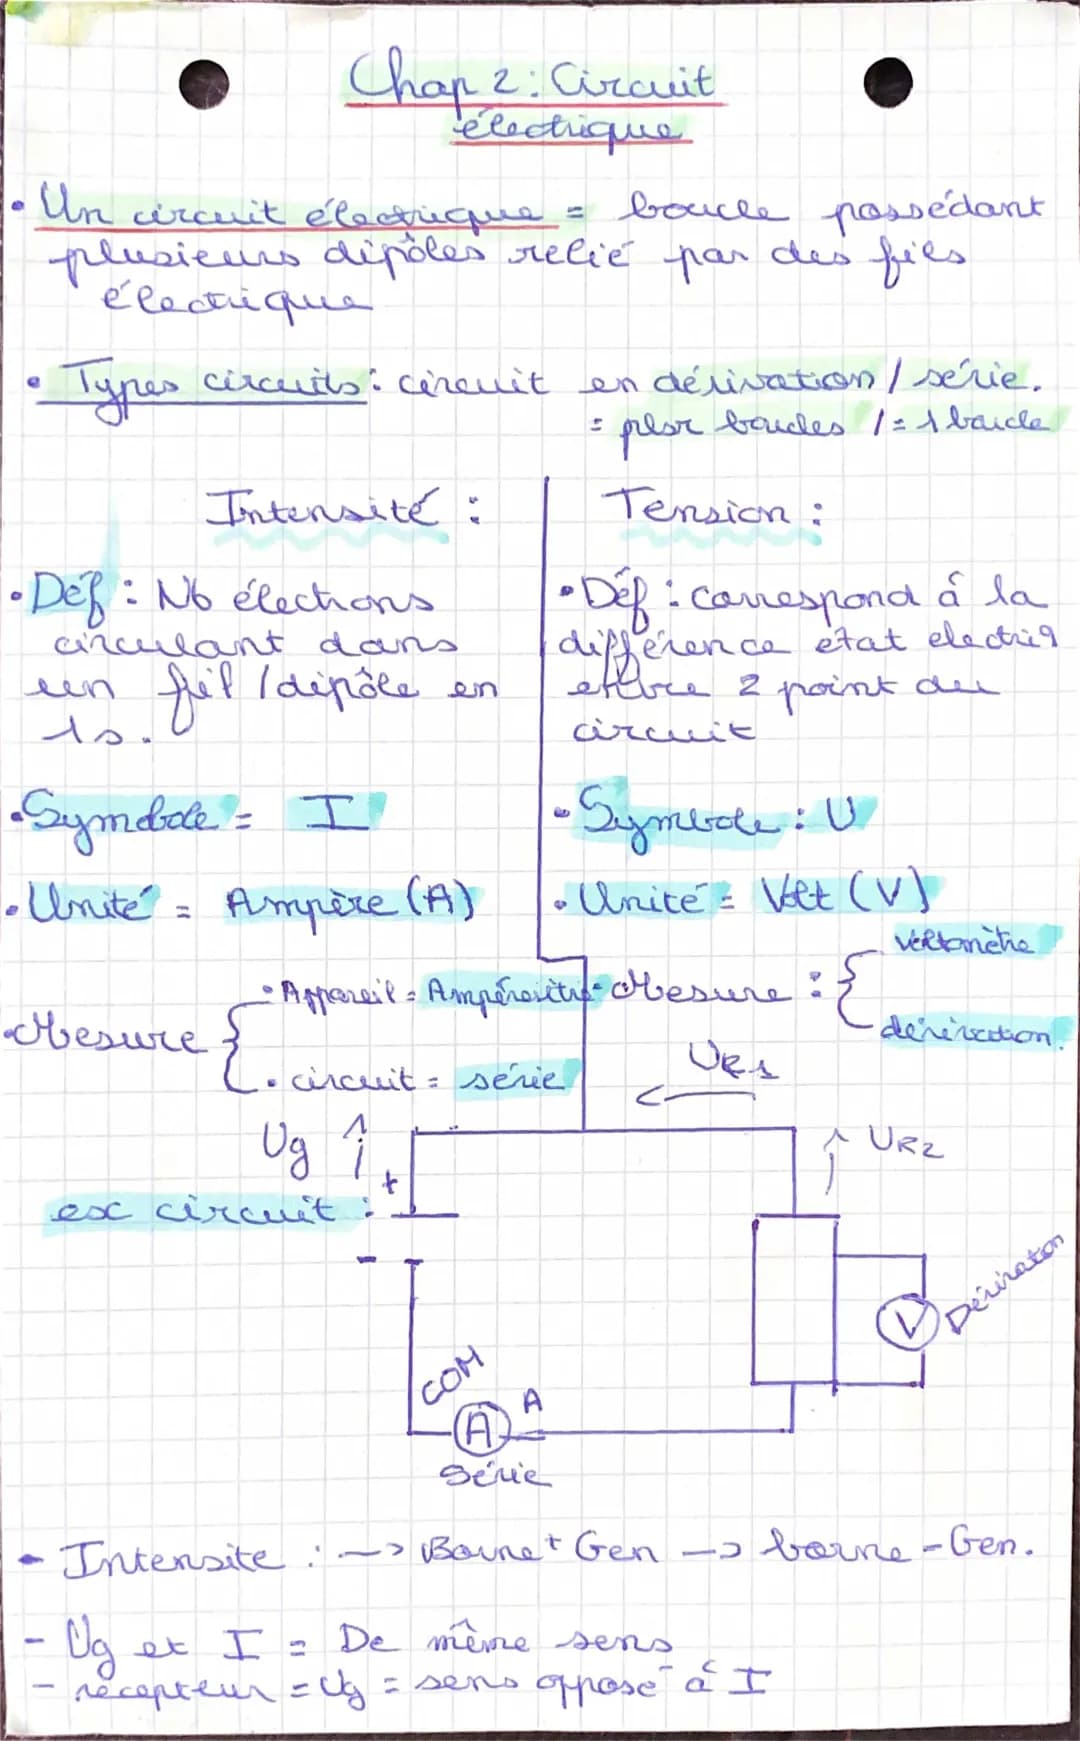 Chap 2 : Circuit
électrique
• Un circuit électrique = boucle possédant
plusieurs dipôles relié par des fils
électrique
• Types circuits : circuit en dérivation / série.
= plsr boucles / = 1 boucle
Intensité :
• Déf : Nb élections
circulant dans
un fil / dipôle en
1s.
• Symbole = I
• Unité = Ampère (A)
• Mesure {
• Appareil = Ampèremètre
• circuit = série
Tension :
• Déf : correspond á la
différence état electriq
entre 2 point du
circuit
• Symbole : U
• Unité = Volt (V)
• Mesure : {
voltmètre
dérivation.
UR1
Ug
UR2
+
ex circuit :
-
V
Dérivation
COM
A
A
Série
- Intensite : -> Borne + Gen -> borne - Gen.
- Ug et I = De même sens
- récepteur = Ug = sens opposé á I